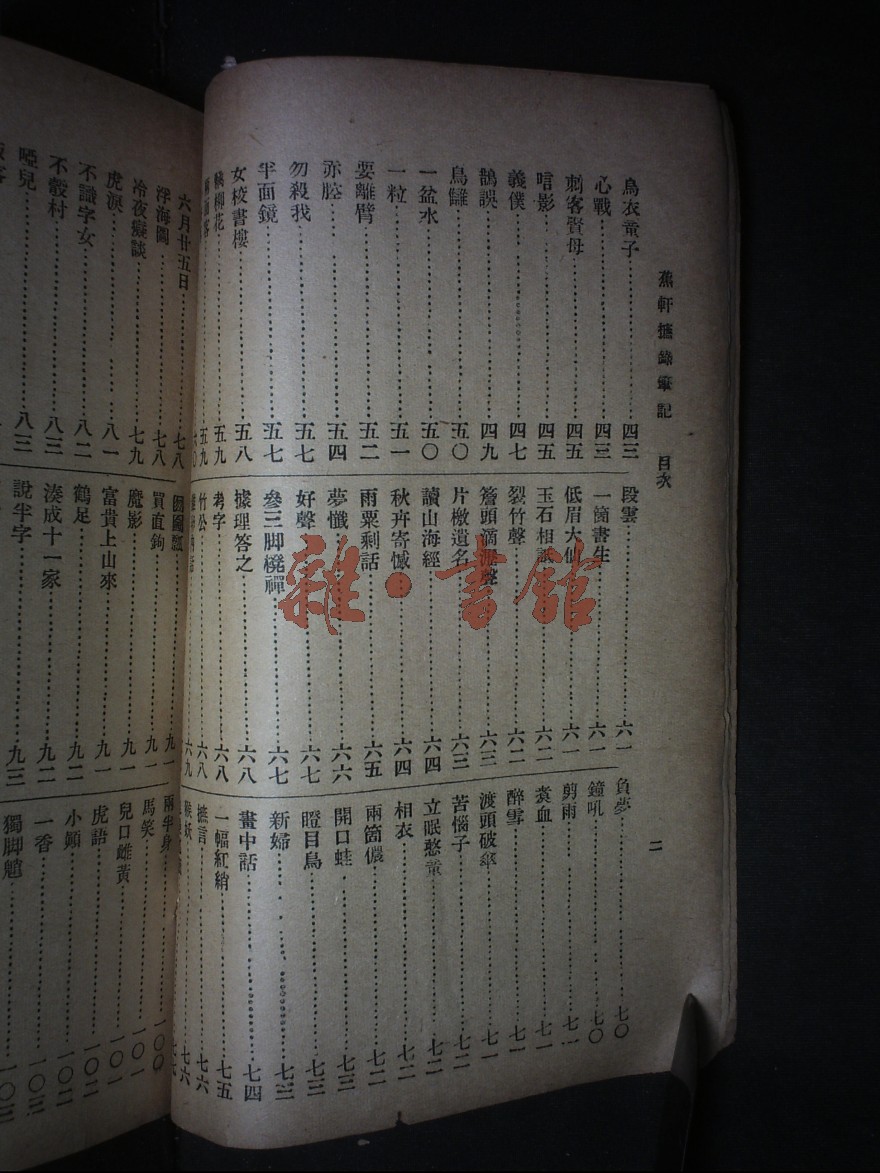 蕉軒摭錄筆記 目次 二
烏衣童子 四三
心戰 四三
刺客賢母 四五
唁影 四五
義僕 四七
鵲誤 四九
鳥讎 五〇
一盆水 五〇
一粒 五一
要離臂 五二
赤腔 五四
勿殺我 五七
半面鏡 五七
女校書樓 五八
柳花 五九
五九
六〇
段雲 六一
一箇書生 六一
低眉大仙 六一
玉石相 六二
裂竹聲 六二
簷頭滴 聲 六三
片檄遺名 六三
讀山海經 六四
秋卉寄憾 六四
雨粟剩話 六五
夢懺 六六
好聲 六七
參三脚櫈禪 六七
據理答之 六八
考字 六八
竹公 六八
六九
負夢 七〇
鐘吼 七〇
剪雨 七一
袁血 七一
醉雪 七一
渡頭破傘 七一
苦惱子 七二
立眠憨童 七二
相衣 七二
兩箇儂 七二
開口蛙 七三
瞪目鳥 七三
新婦 七三
畫中話 七四
一幅紅綃 七五
摭言 七六
猴妖 七六
六月廿五日 七八
浮海圖 七八
冷夜癡談 七九
虎淚 八一
不識字女 八二
不轂村 八三
啞兒 八三
囫圇瓢 九一
買直鉤 九一
魔影 九一
富貴上山來 九一
鶴足 九二
湊成十一家 九二
說半字 九三
兩半身 一〇〇
馬笑 一〇〇
兒口雌黃 一〇一
虎語 一〇一
小顚 一〇二
一香 一〇三
獨脚魈 一〇三
雜·書舘